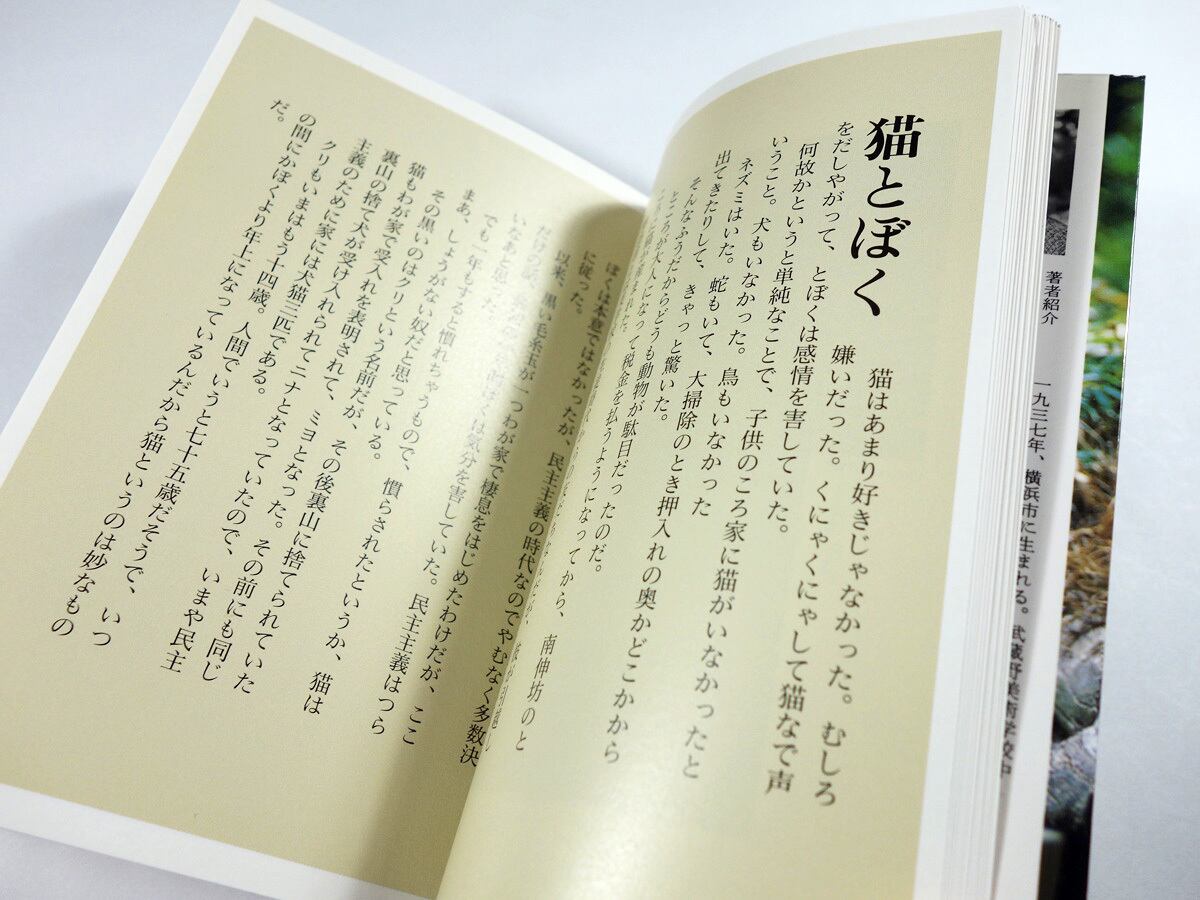 猫とぼく
猫はあまり好きじゃなかった。むしろ
嫌いだった。くにゃくにゃして猫なで声
をだしやがって、とぼくは感情を害していた。
何故かというと単純なことで、子供のころ家に猫がいなかったと
いうこと。犬もいなかった。鳥もいなかった
ネズミはいた。蛇もいて、大掃除のとき押入れの奥かどこかから
出てきたりして、きゃっと驚いた。
そんなふうだからどうも動物が駄目だったのだ。
ところが大人になって税金を払うようになってから、南伸坊のと
ぼくは本意ではなかったが、民主主義の時代なのでやむなく多数決
に従った。
以来、黒い毛糸玉が一つわが家で棲息をはじめたわけだが、ここ
だけの話、
は気分を害していた。民主主義はつら
いなあと思った
でも一年もすると慣れちゃうもので、慣らされたというか、猫は
まあ、しょうがない奴だと思っている。
その黒いのはクリという名前だが、その後裏山に捨てられていた
猫もわが家で受入れを表明されて、ミヨとなった。その前にも同じ
裏山の捨て犬が受け入れられてニナとなっていたので、いまや民主
主義のために家には犬猫三匹である。
クリもいまはもう十四歳。人間でいうと七十五歳だそうで、いつ
の間にかぼくより年上になっているんだから猫というのは妙なもの
だ。
著者紹介
一九三七年、横浜市に生まれる。武蔵野美術学校中